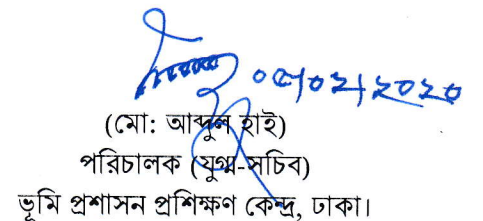 ০৫/০২/২০২০
(মো: আব্দুল হাই)
পরিচালক (যুগ্ম-সচিব)
ভূমি প্রশাসন প্রশিক্ষণ কেন্দ্র, ঢাকা।